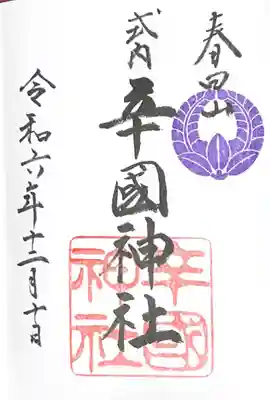 春日
式内
辛國神社
令和六年十二月十日
辛國
神社